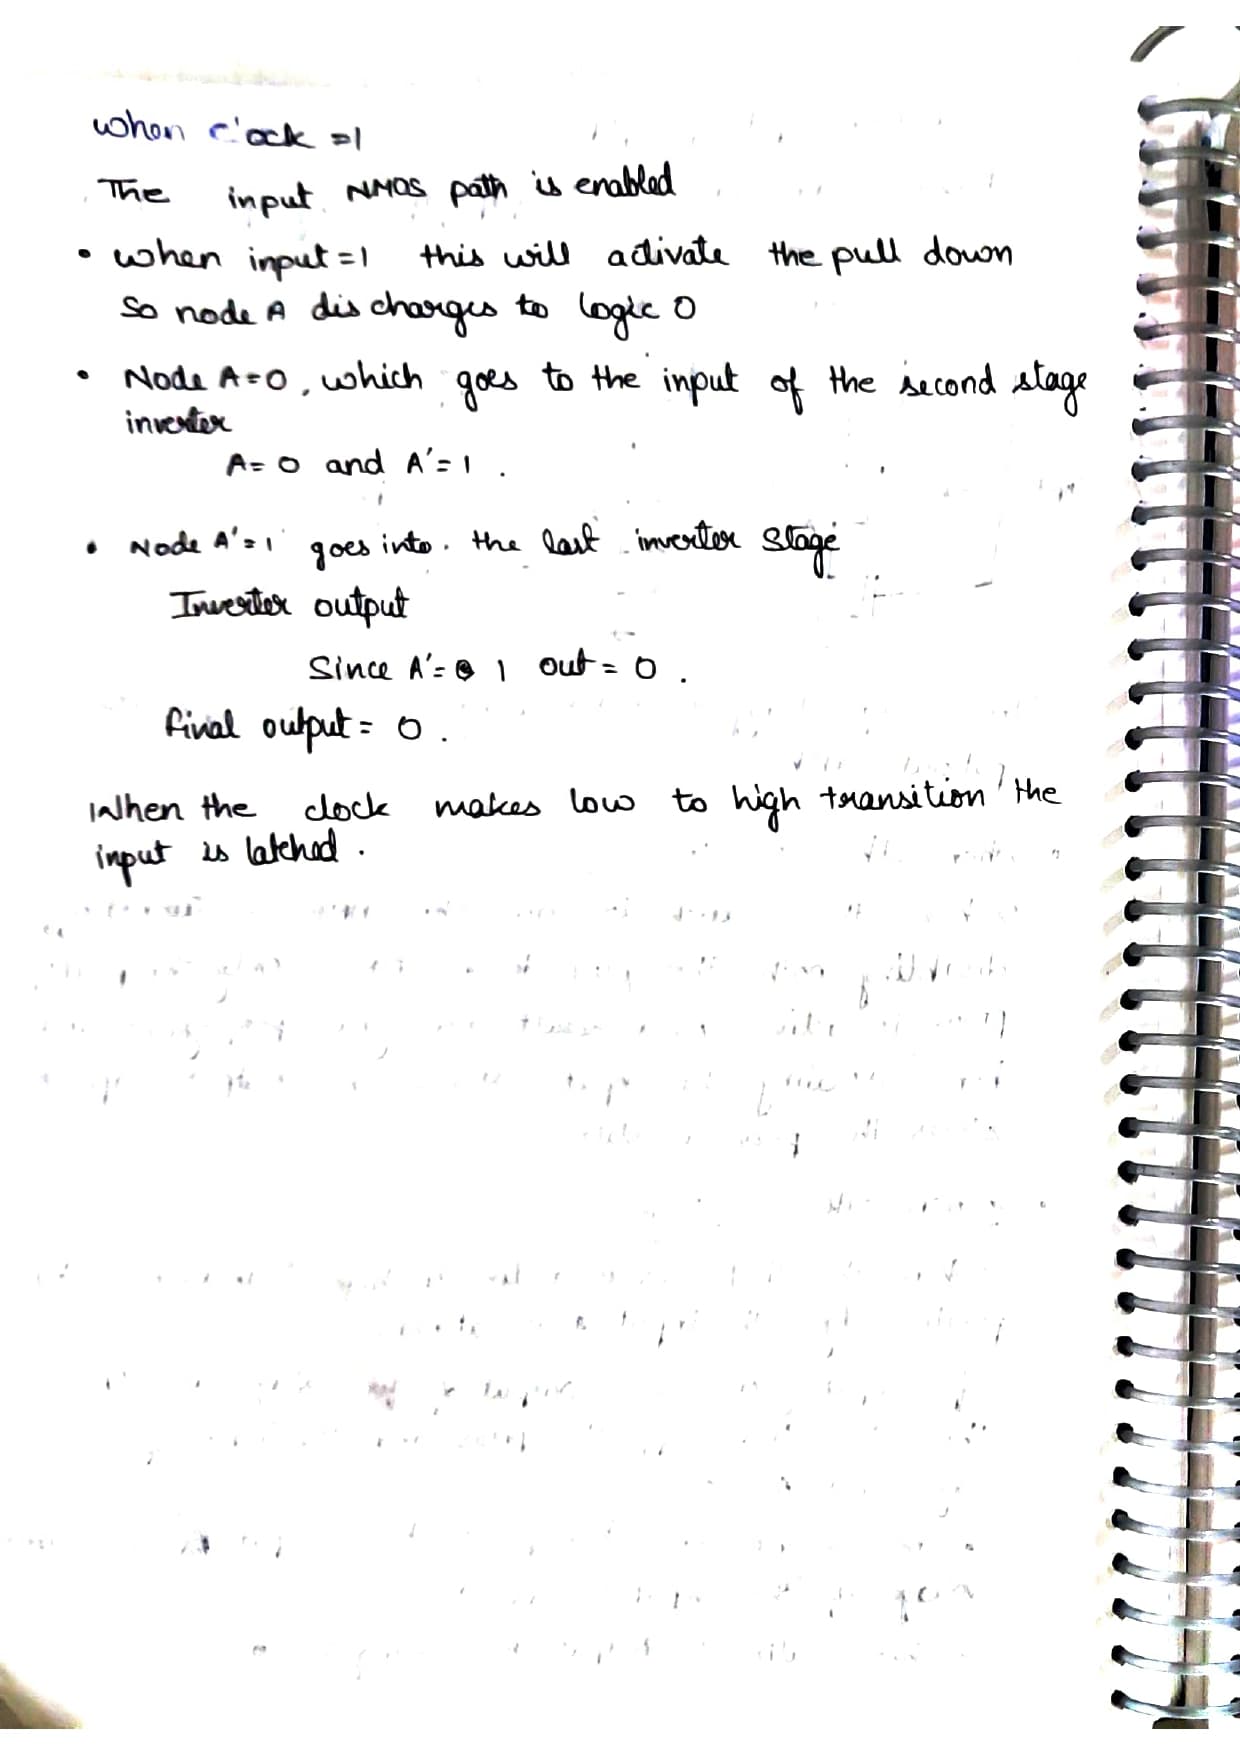 When clock =1
The input NMOS path is enabled
• when input=1 this will activate the pull down
So node A discharges to logic 0
• Node A=0, which goes to the input of the second stage
inverter
A= 0 and A'= 1 .
• Node A'=1 goes into the last inverter stage
Inverter output
Since A'= 1 out = 0 .
final output = 0 .
When the clock makes low to high transition the
input is latched .